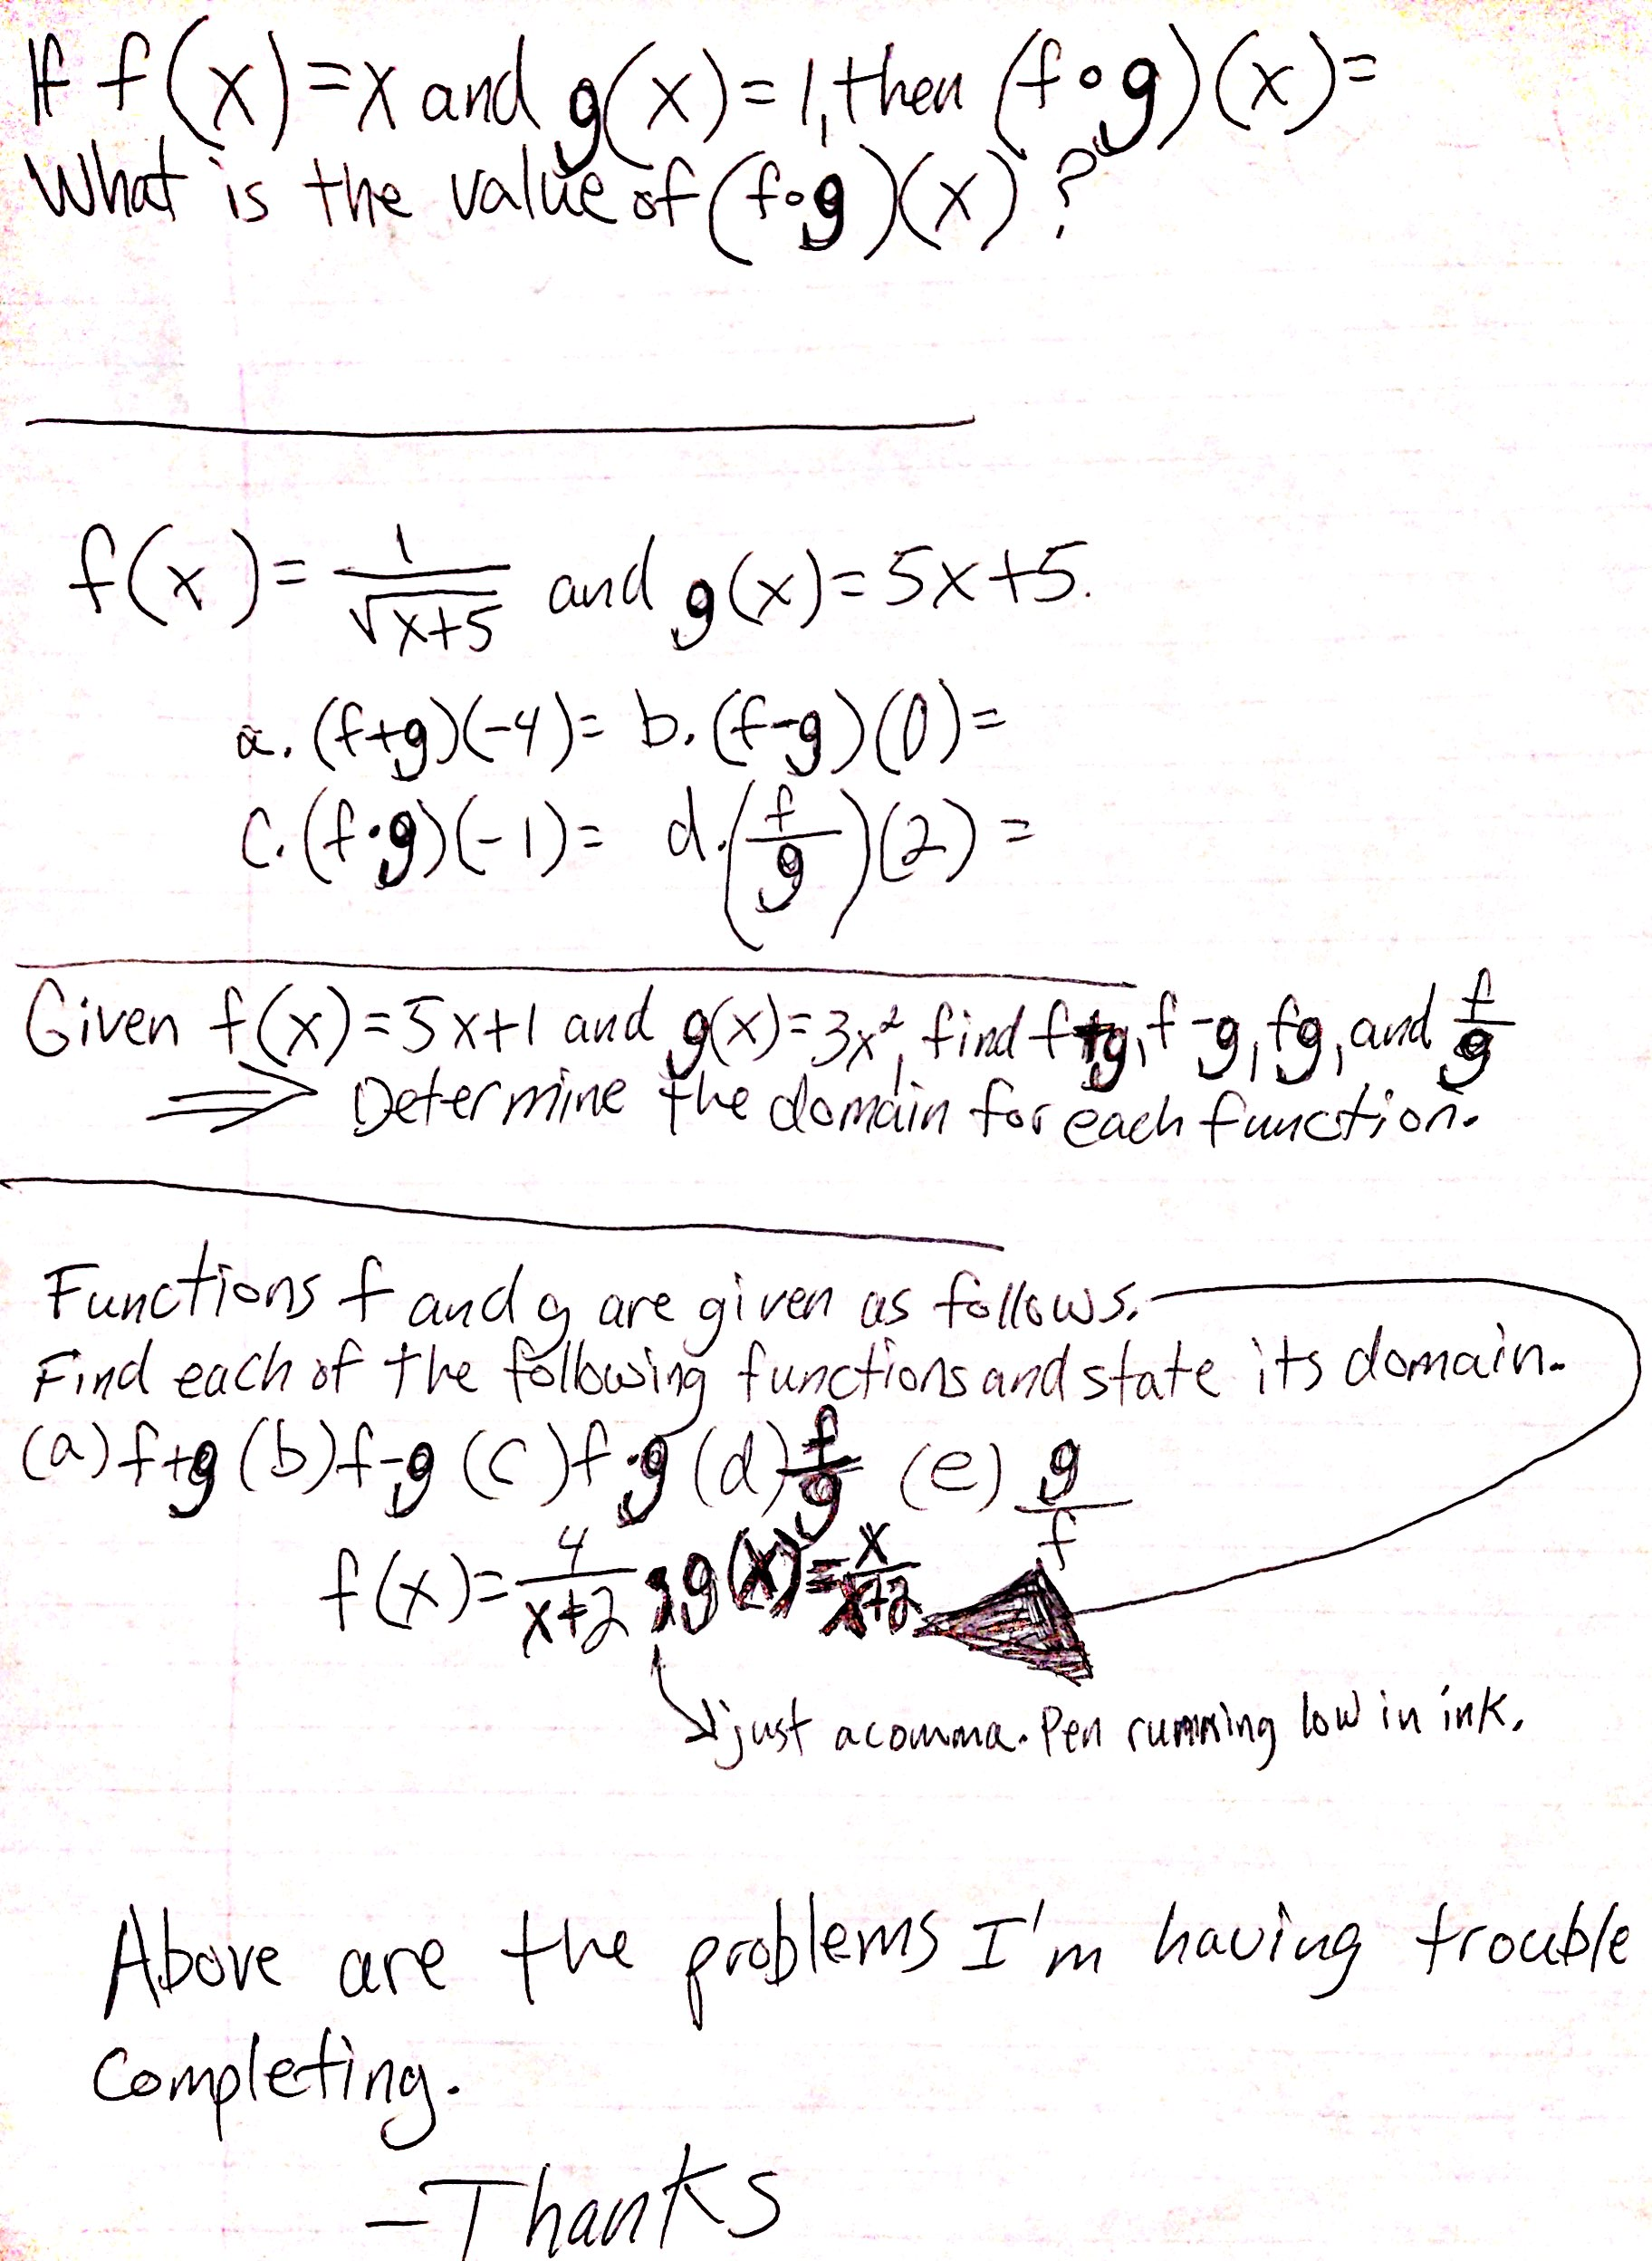 If f(x)=x and g(x)=1, then (f∘g)(x)=
What is the value of (f∘g)(x)?
f(x)= 1/√(x+5) and g(x)=5x+5.
a. (f+g)(-4)= b. (f-g)(0)=
c. (f·g)(-1)= d. (f/g)(2)=
Given f(x)=5x+1 and g(x)=3x², find f+g, f-g, fg, and f/g
⇒ Determine the domain for each function.
Functions f and g are given as follows.
Find each of the following functions and state its domain.
(a) f+g (b) f-g (c) f·g (d) f/g (e) g/f
f(x)= 4/(x+2) , g(x)= x/(x+2)
just a comma. Pen running low in ink.
Above are the problems I'm having trouble
completing.
-Thanks